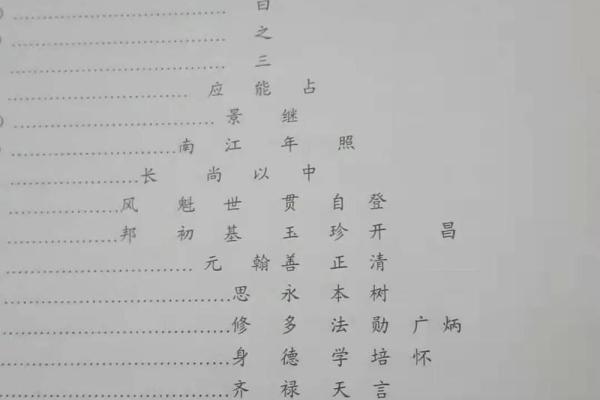 之
三
应 能 占
景 继
南 江 年 照
长 尚 以 中
风 魁 世 贯 自 登
邦 初 基 玉 珍 开 昌
元 翰 善 正 清
思 永 本 树
修 多 法 勋 广 炳
身 德 学 培 怀
齐 禄 天 言